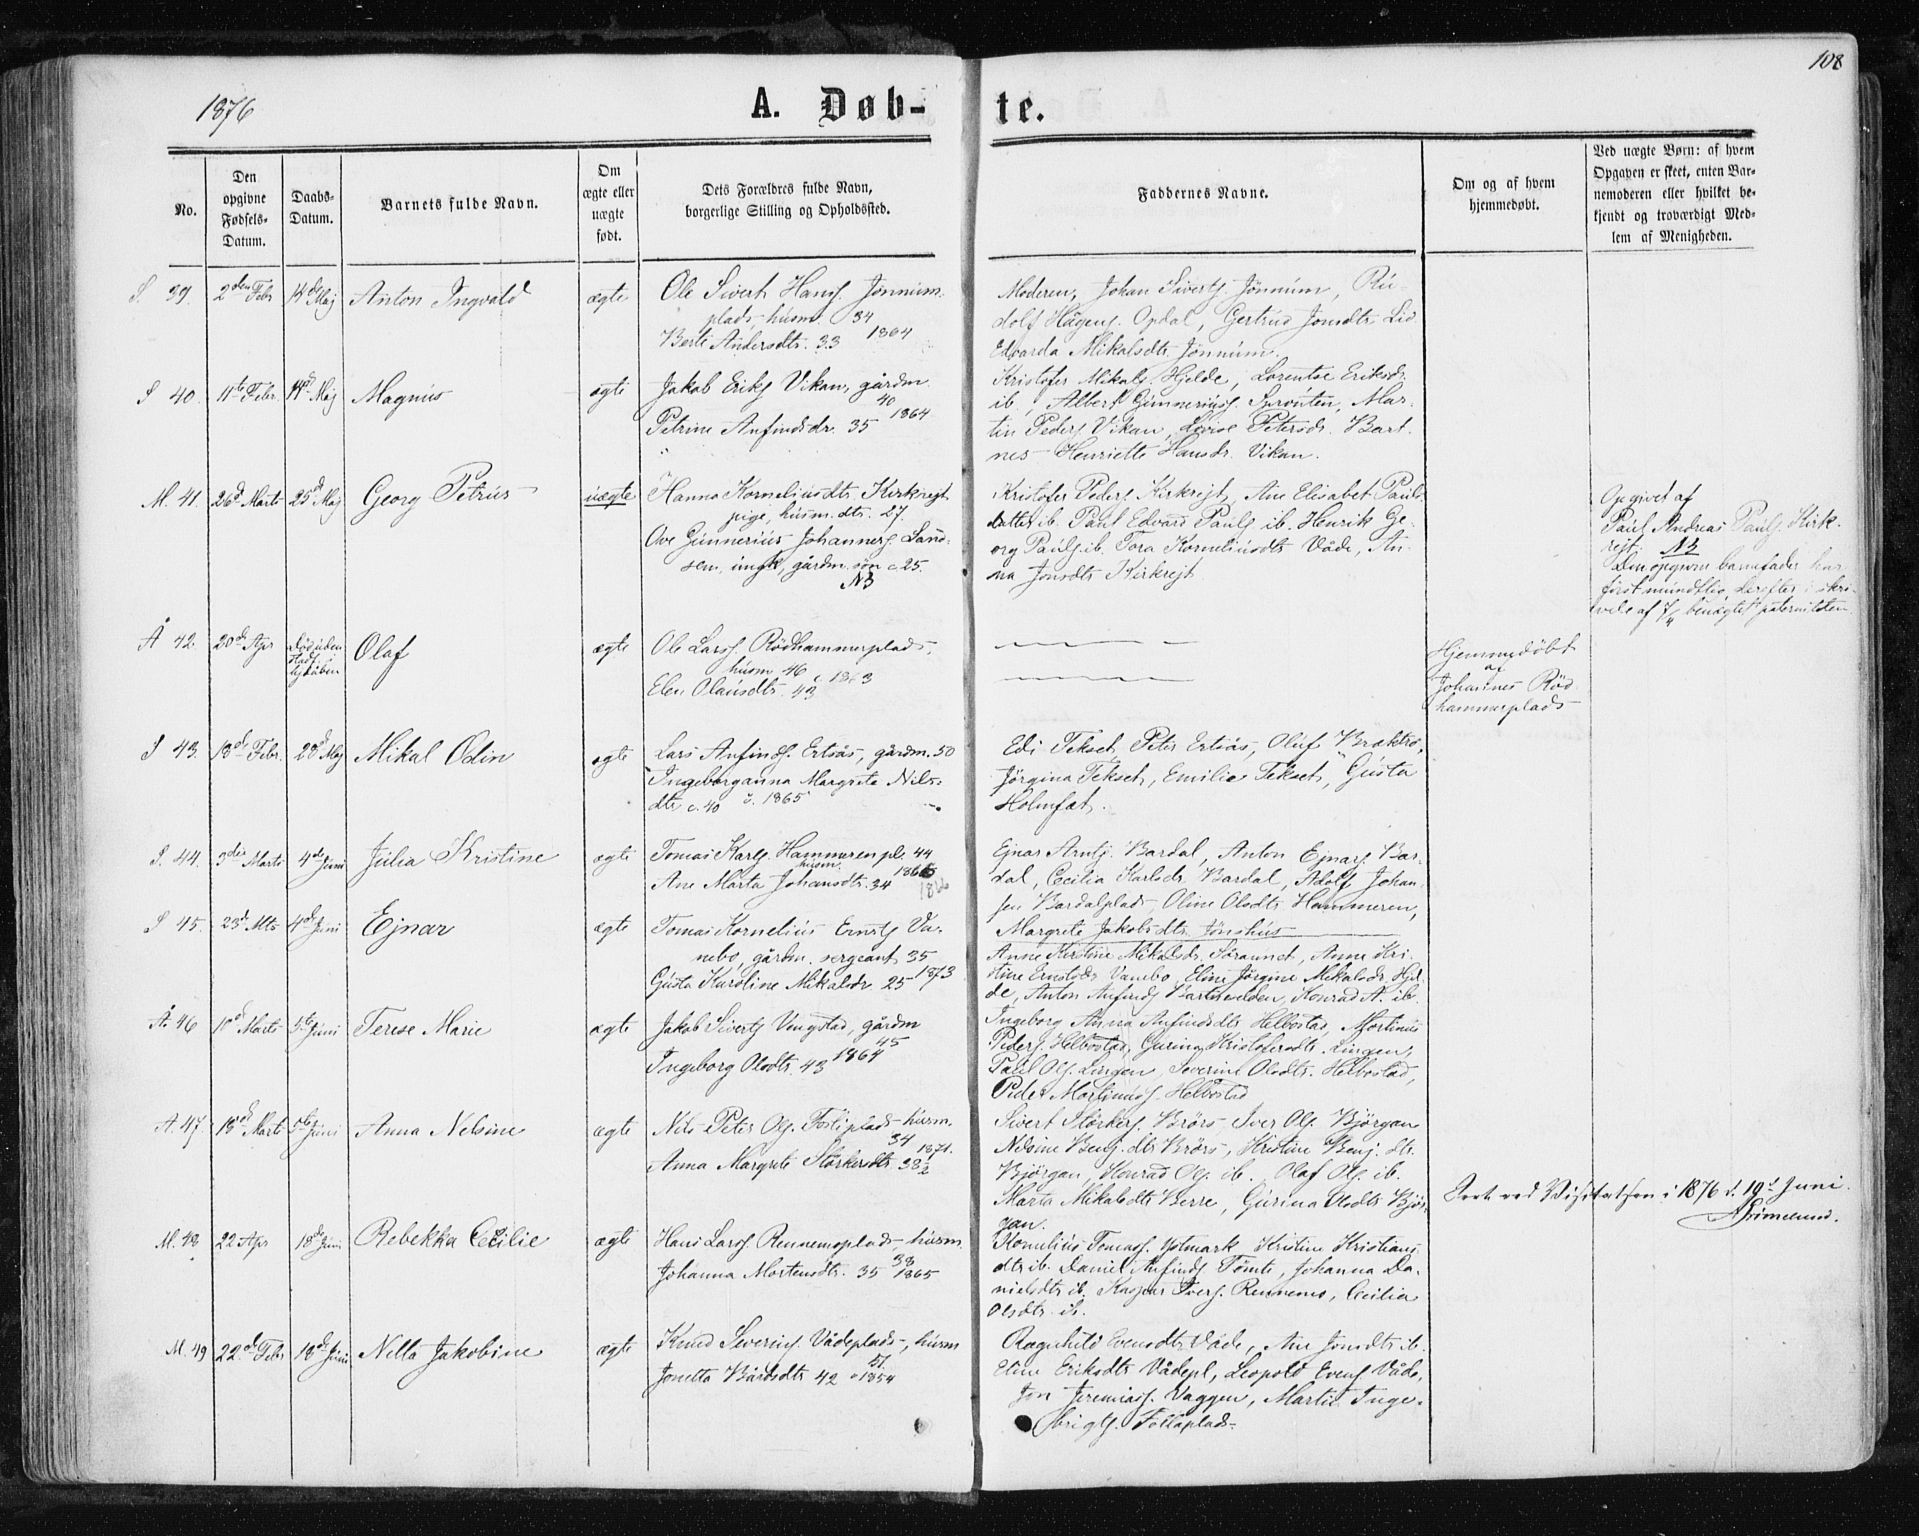 1876
A. Døb-
te.
108
No.
Den opgivne Fødsels-Datum.
Daabs-Datum.
Barnets fulde Navn.
Om ægte eller uægte født.
Dets Forældres fulde Navn,
borgerlige Stilling og Opholdssted.
Faddernes Navne.
Om og af hvem
hjemmedøbt.
Ved uægte Børn: af hvem
Opgaven er skeet, enten Bar-
nemoderen eller hvilket be-
kjendt og troværdigt Med-
lem af Menigheden.
S. 39. 2den Febr 14de Maj Anton Ingvald ægte
Ole Sivert Hans. Jönnum-
plads, husm. 34
Berte Andersdtr. 33 1864
Moderen, Johan Siverts. Jönnum, Ru-
dolf Hågens. Opdal, Gertrud Jonsdtr Lid
Edvarda Mikalsdtr. Jönnum.
S 40. 11te Febr. 14de Maj Magnus ægte
Jakob Eriks. Vikan, gårdm.
40
Petrine Anfindsdr. 35 1864
Kristofer Mikals. Hjelde, Lorentse Eriksdr.
ib, Albert Gunneriuss. Spronten, Mar-
tin Peders. Vikan, Lovise Petersdr. Bart-
nes Henriette Hansdr. Vikan.
M. 41. 26d Marts 25d Maj Georg Petrus uægte
Hanna Korneliusdtr. Kirkrejt
pige, husm. dtr. 27.
Ove Gunnerius Johanners. Land-
sem, ungk, gårdm. søn c. 25.
NB
Kristofer Peders. Kirkrejt, Ane Elisabet Pauls-
datter ib. Paul Edvard Pauls. ib. Henrik Ge-
org Pauls. ib. Tora Korneliusdtr Våde, An-
na Jonsdtr Kirkrejt.
Opgivet af
Paul Andreas Pauls. Kirk-
rejt. NB
Den opgivne barnefader har
først mundtlig, derefter i skri-
velse af benægtet paterniteten.
Å 42. 20de Apr Död uden
Olaf ægte
Ole Larss. Rödhammerplads,
husm 46
Elen Olausdtr. 43 1863
Hjemmedöbt
af
Johannes Röd
hammerplads
S 43. 18de Febr. 28d Maj Mikal Odin ægte
Lars Anfinds. Ertsås, gårdm. 50
Ingeborganna Margrete Nils-
dtr c. 40 1865
Edi Tekset, Peter Ertsås, Oluf Braktrø,
Jörgina Tekset, Emilie Tekset, Gusta
Holmset.
S. 44. 3die Marts 4de Juni Julia Kristine ægte
Tomas Karls. Hammeren pl. 44
husm.
Ane Marta Johansdtr. 34
1866
Ejnar Arnts. Bardal, Anton Ejnars. Bar-
dal, Cecilia Karlsdr. Bardal, Adolf Johan-
sen Bardalplads, Oline Olsdtr Hammeren,
Margrete Jakobsdtr. Jönshus
S 45. 23d Mts 4de Juni Ejnar ægte
Tomas Kornelius Ernsts. Va-
nebo, gårdm. sergeant 35
Gusta Karoline Mikalsdr 25 1873
Anne Kirstine Mikalsdr. Söraunet, Anne Kri-
stine Ernstsdr Vanebo, Eline Jørgine Mikalsdr. Hjel-
de, Anton Anfinds. Bartnesvalden, Konrad A. ib.
Å. 46 10d Marts 5te Juni Terese Marie ægte
Jakob Siverts Vengstad, gårdm
45
Ingeborg Olsdtr. 43 1864
Ingeborg Anna Anfindsdtr Helbostad, Mortinus
Peders. Helbostad, Gurina Kristofersdtr. Lingen,
Paul Ols. Lingen, Severine Olsdtr. Helbostad,
Peder Mortinuss. Helbostad
Å. 47. 18de Marts 5te Juni Anna Nelsine ægte
Nils Peter Ols. Fosliplads husm.
34 1871.
Anna Margrete Størkersdtr 38½
Sivert Størkers. Brörs, Iver Ols. Björgan
Benj. dtr Brörs, Kristine Benj. dtr.
Björgan, Konrad Ols. ib. Olaf Ols. ib.
Marta Mikalsdtr Berre, Gurina Olsdtr Björ-
gan.
Seet ved Visitatsen i 1876 d. 19d Juni.
AGrimelund.
M. 48 22 Apr 18de Juni Rebekka Cecilie ægte
Hans Larss. Rennemsplads husm.
38
Johanna Mortensdtr. 35 1865
Kornelius Tomass. Ystmark Kristine Kristians
dtr ib. Daniel Anfinds. Tömte, Johanna Da-
nielsdtr ib. Kaspar Ivers. Rennemo, Cecilia
Olsdtr. ib.
M. 49 22.de Febr 18de Juni Nella Jakobine ægte
Knud Severins. Vådeplads, husm
51.
Jonetta Bårdsdtr 42 1854
Ragnhild Evensdtr. Våde, Ane Jonsdtr ib.
Eline Eriksdtr Vådepl, Leopold Evens. Våde,
Jon Jeremiass. Vaggen, Martin Inge-
brigts. Follaplads